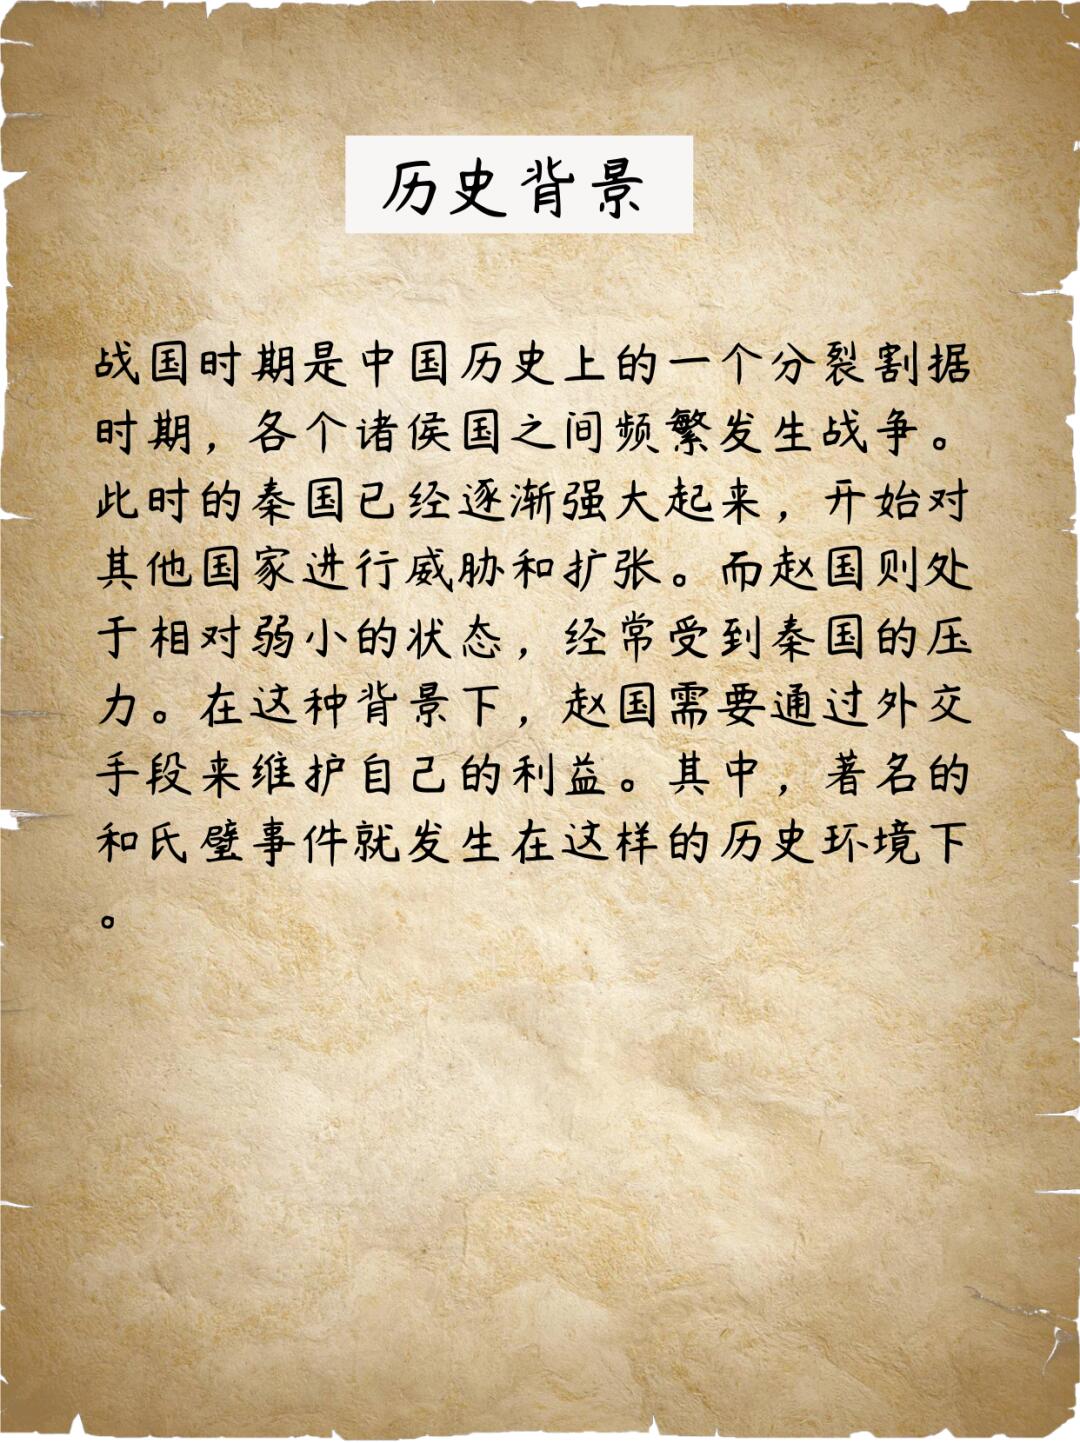 历史背景
战国时期是中国历史上的一个分裂割据
时期，各个诸侯国之间频繁发生战争。
此时的秦国已经逐渐强大起来，开始对
其他国家进行威胁和扩张。而赵国则处
于相对弱小的状态，经常受到秦国的压
力。在这种背景下，赵国需要通过外交
手段来维护自己的利益。其中，著名的
和氏璧事件就发生在这样的历史环境下
。